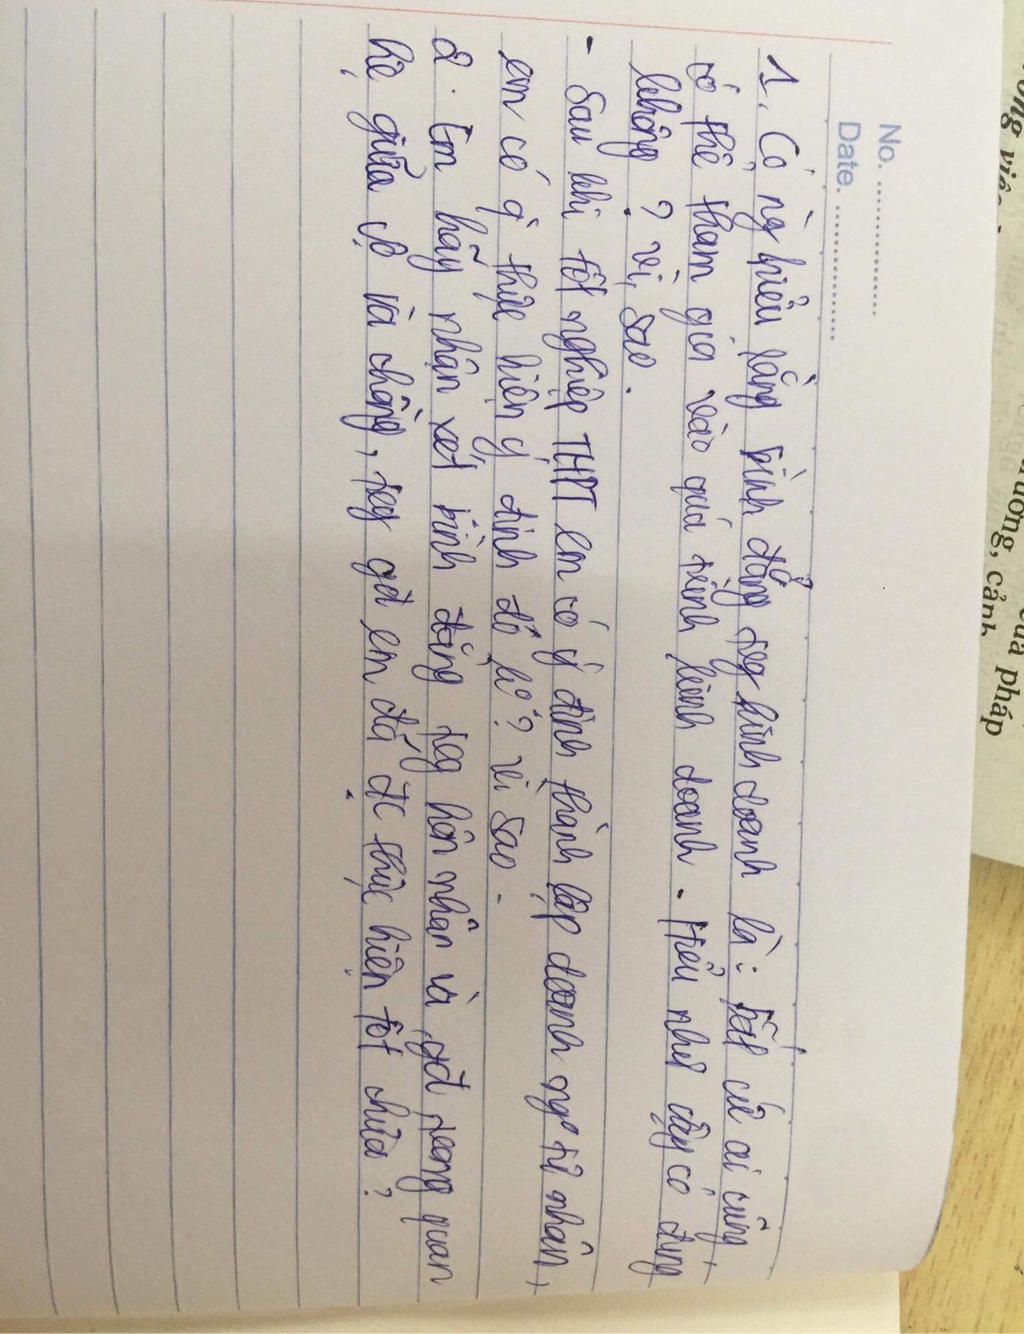 No. ................
Date. ................
1. Có ng hiểu rằng bình đẳng trg kinh doanh là: bất cứ ai cũng
có thể tham gia vào quá trình kinh doanh. Hiểu như vậy có đúng
không? Vì sao.
- Sau khi tốt nghiệp THPT em có ý định thành lập doanh ng° tư nhân,
em có thực hiện ý định đó k°? vì sao.
2. Em hãy nhận xét bình đẳng trg hôn nhân và gđ trong quan
hệ giữa vợ và chồng, trg gđ em đã đc thực hiện tốt chưa?
ường, cảnh
của pháp